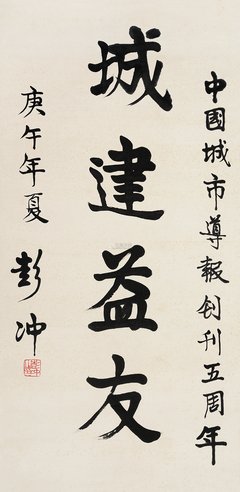 中國城市導報创刊五周年
城建益友
庚午年夏
彭冲